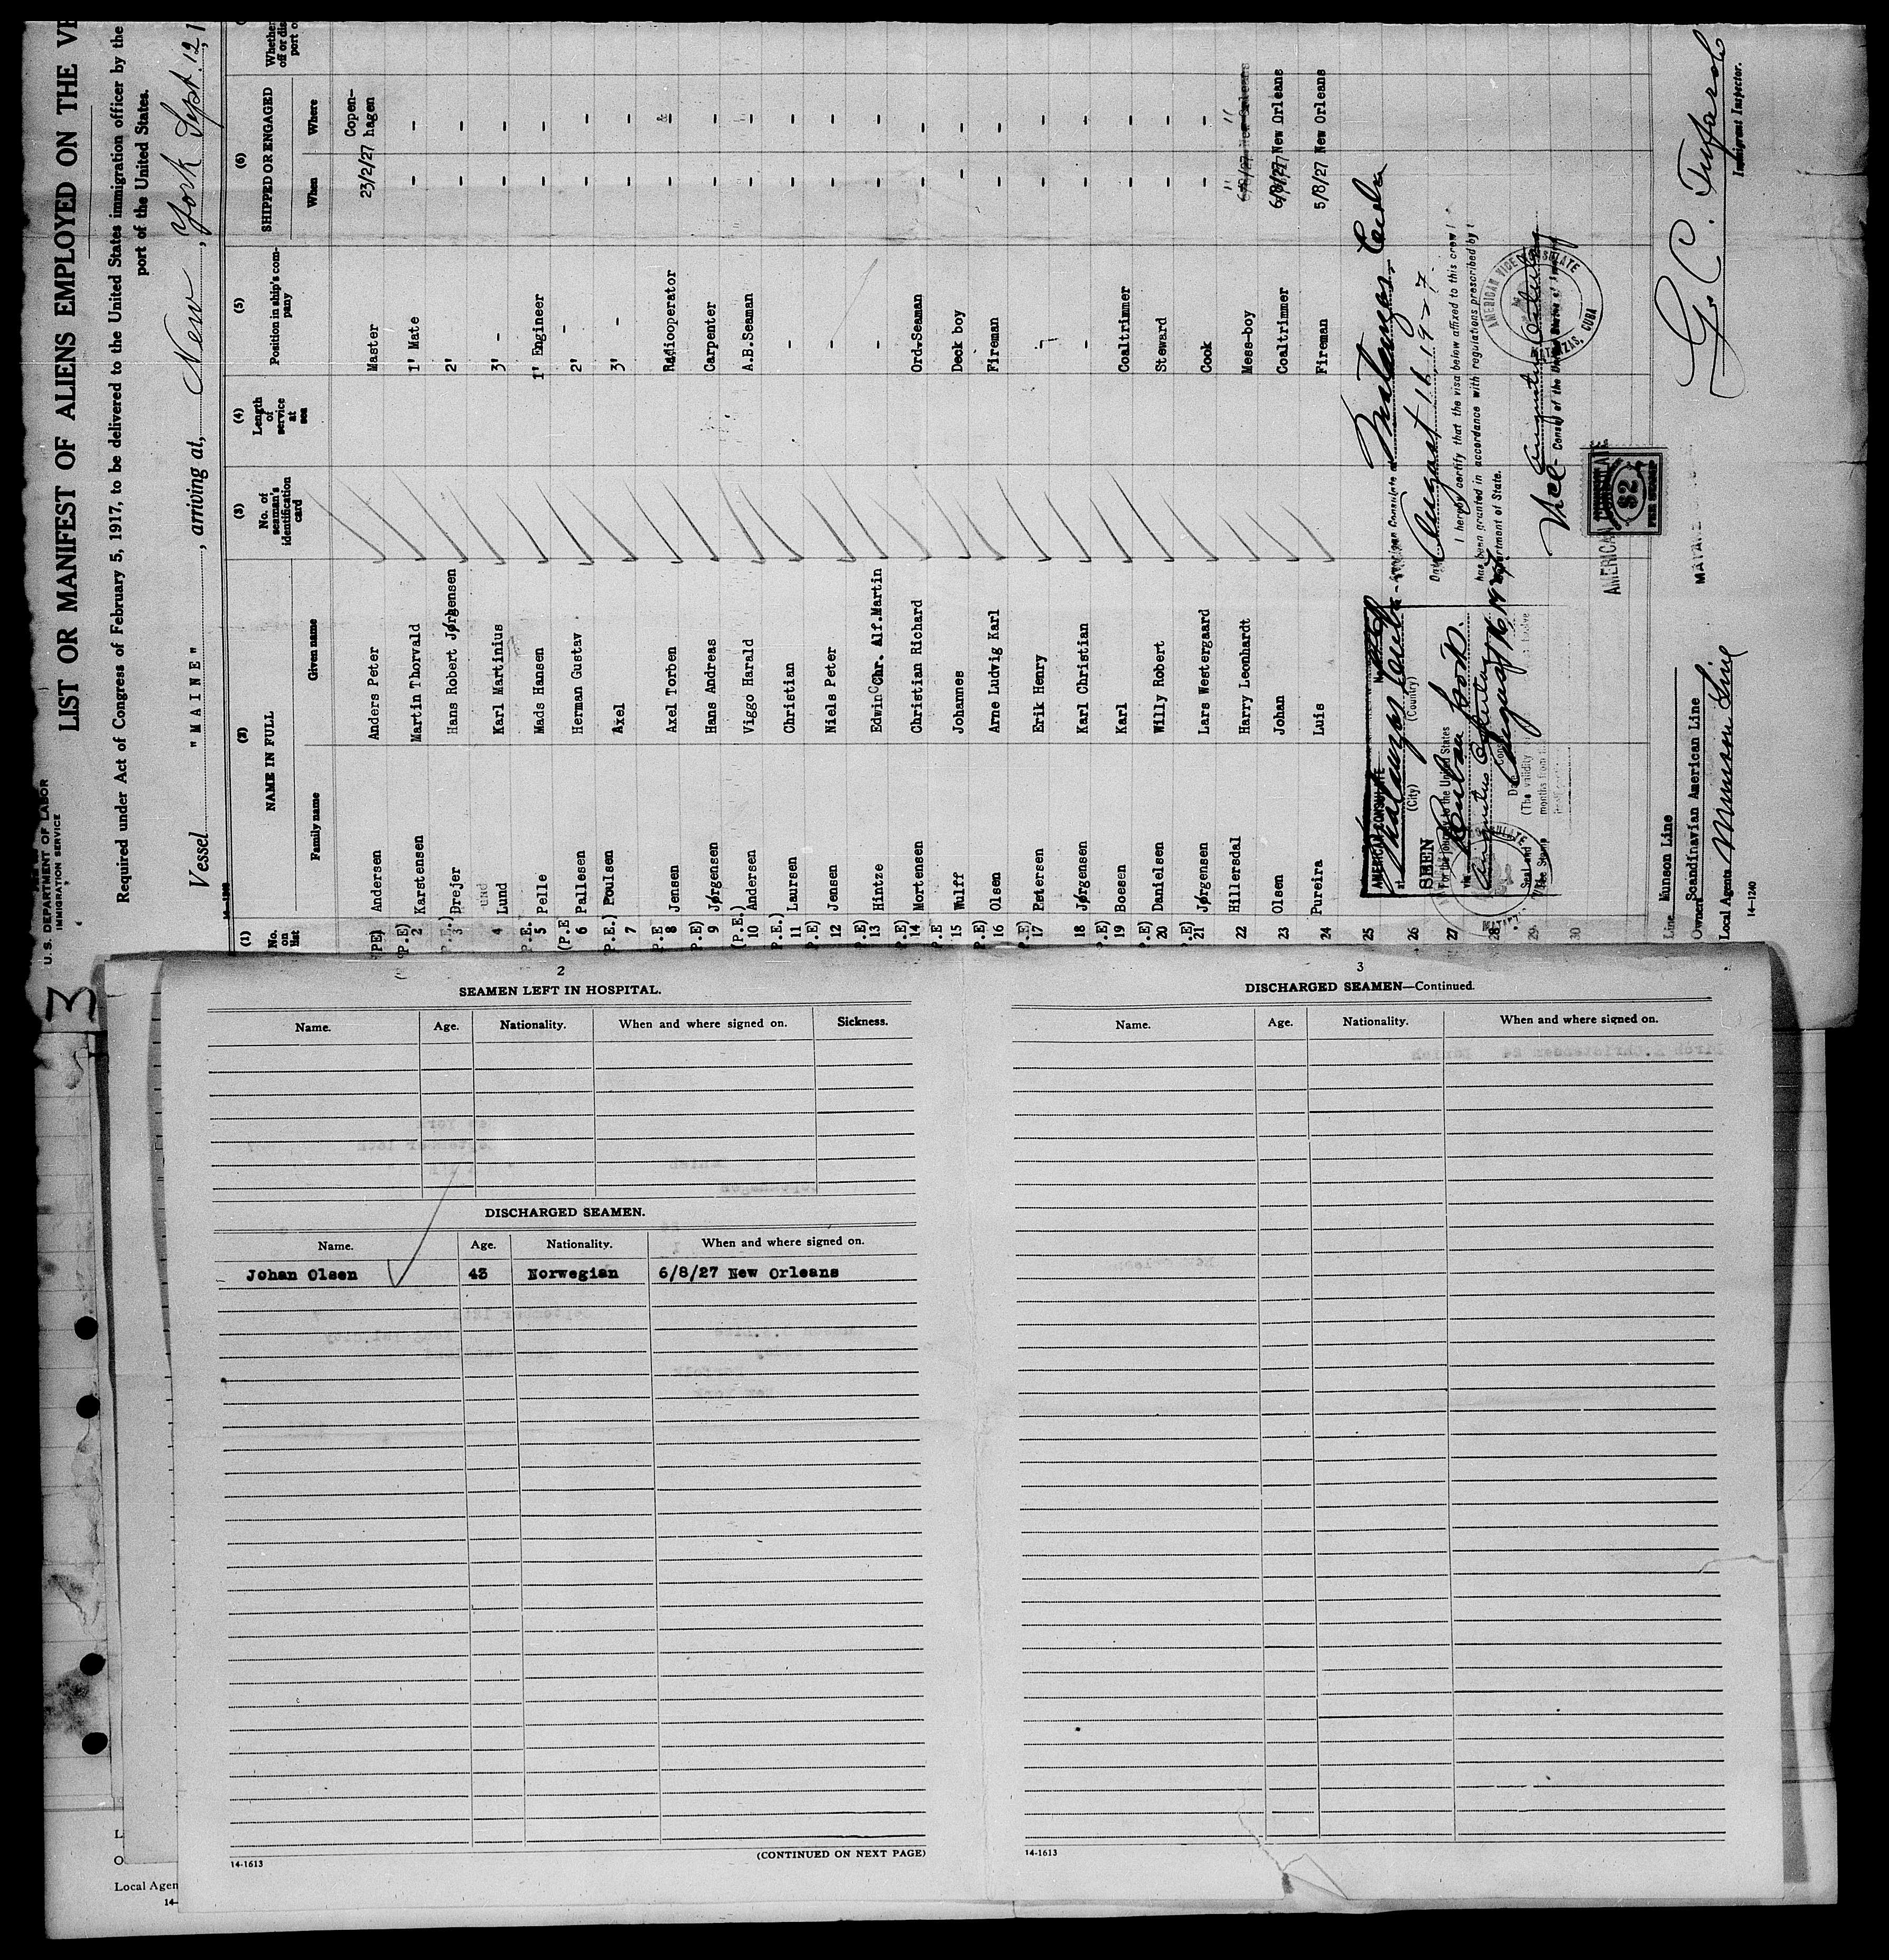 3
U.S. DEPARTMENT OF LABOR
IMMIGRATION SERVICE
LIST OR MANIFEST OF ALIENS EMPLOYED ON THE
Required under Act of Congress of February 5, 1917, to be delivered to the United States immigration officer by the
port of the United States.
Vessel "MAINE", arriving at, New York, Sept. 12,
(1) (2) (3) (4) (5) (6)
No. on list NAME IN FULL No. of seaman's identification card Length of service at sea Position in ship's company SHIPPED OR ENGAGED Whether
Family name Given name When Where
(PE) Andersen Anders Peter Master 23/2/27 Copenhagen
(P.E) 2 Karstensen Martin Thorvald 1' Mate - -
3 Drejer Hans Robert Jørgensen 2' - -
4 Lund Karl Martinius 3' - - -
P.E. 5 Pelle Mads Hansen 1' Engineer - -
(P.E 6 Pallesen Herman Gustav 2' - - -
P.E.) 7 Poulsen Axel 3' - - -
P.E 8 Jensen Axel Torben Radiooperator - -
P.E) 9 Jørgensen Hans Andreas Carpenter - -
(P.E.) 10 Andersen Viggo Harald A.B.Seaman - -
P.E.) 11 Laursen Christian - - -
P.E) 12 Jensen Niels Peter - - -
P.E) 13 Hintze Edwin Chr. Alf.Martin - - -
P.E) 14 Mortensen Christian Richard Ord.Seaman - -
P.E 15 Wulff Johannes Deck boy - -
P.E) 16 Olsen Arne Ludvig Karl Fireman - -
P.E) 17 Petersen Erik Henry - - -
18 Jørgensen Karl Christian - - -
P.E) 19 Boesen Karl Coaltrimmer - -
P.E) 20 Danielsen Willy Robert Steward - -
P.E) 21 Jørgensen Lars Westergaard Cook - -
22 Hillersdal Harry Leonhardt Mess-boy " "
23 Olsen Johan Coaltrimmer 6/8/27 New Orleans
24 Pureira Luis Fireman 5/8/27 New Orleans
25
26
27
28
29
30
AMERICAN CONSULATE
at Matanzas, Cuba
(City) (Country)
SEEN
For the journey to the United States
Date August 16, 1927
(The validity
months from
Seal and
Fee Stamp
American Consulate at Matanzas, Cuba
Date August 16, 1927.
I hereby certify that the visa below affixed to this crew
has been granted in accordance with regulations prescribed by
Department of State.
Vice- Consul of the United States of America
AMERICAN VICE CONSULATE
MATANZAS, CUBA
AMERICAN CONSULATE
$2
FEE STAMP
Line Munson Line
Owners Scandinavian American Line
Local Agents Munson Line
14-1240
Immigrant Inspector.
2
SEAMEN LEFT IN HOSPITAL.
Name. Age. Nationality. When and where signed on. Sickness.
DISCHARGED SEAMEN.
Name. Age. Nationality. When and where signed on.
Johan Olsen 43 Norwegian 6/8/27 New Orleans
14-1613
(CONTINUED ON NEXT PAGE)
3
DISCHARGED SEAMEN—Continued.
Name. Age. Nationality. When and where signed on.
14-1613
Local Agen
14-